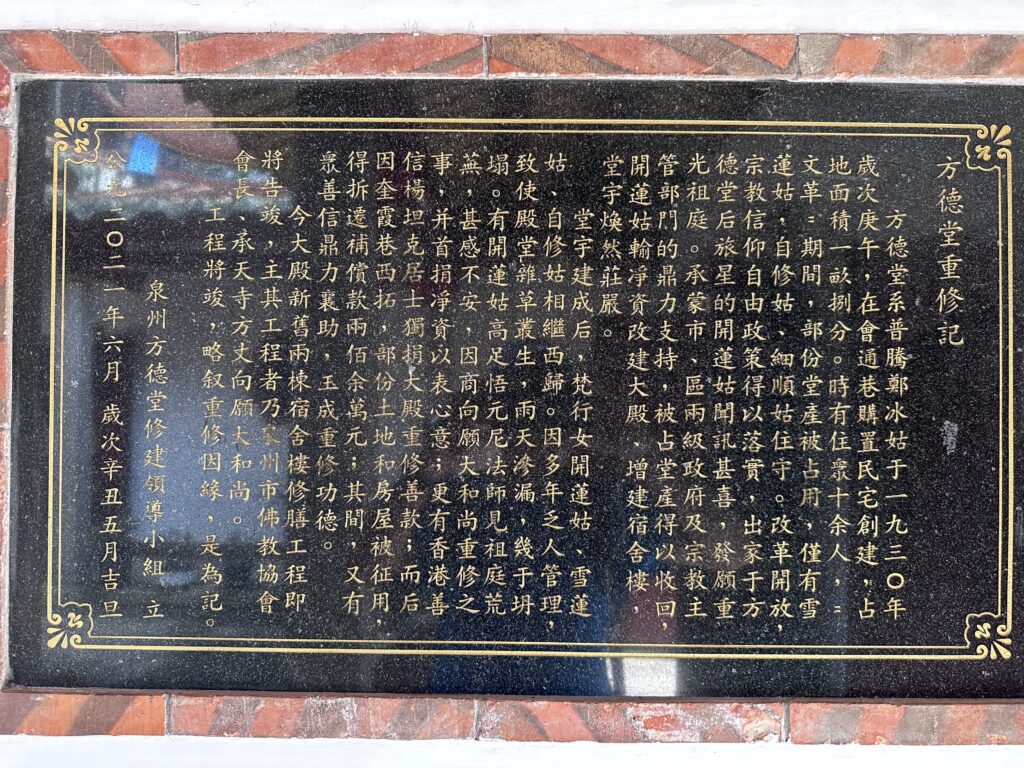 方德堂重修記
方德堂系普騰鄭冰姑于一九三〇年
歲次庚午，在會通巷購置民宅創建，占
地面積一畝捌分。時有住眾十余人，=
文革=期間，部份堂產被占用，僅有雪
蓮姑，自修姑、細順姑住守。改革開放，
宗教信仰自由政策得以落實，出家于方
德堂后旅星的開蓮姑聞訊甚喜，發願重
光祖庭。承蒙市、區兩級政府及宗教主
管部門的鼎力支持，被占堂產得以收回，
開蓮姑輸凈資改建大殿、增建宿舍樓，
堂宇煥然莊嚴。
堂宇建成后，梵行女開蓮姑、雪蓮
姑、自修姑相繼西歸。因多年乏人管理，
致使殿堂雜草叢生，雨天滲漏，幾于坍
塌。有開蓮姑高足悟元尼法師見祖庭荒
蕪，甚感不安，因商向願大和尚重修之
事，并首捐凈資以表心意；更有香港善
信楊坦克居士獨捐大殿重修善款；而后
因奎霞巷西拓，部份土地和房屋被征用，
得拆遷補償款兩佰余萬元；其間，又有
眾善信鼎力襄助，玉成重修功德。
今大殿新舊兩棟宿舍樓修膳工程即
將告竣，主其工程者乃泉州市佛教協會
會長、承天寺方丈向願大和尚。
工程將竣，略叙重修因緣，是為記。
泉州方德堂修建領導小組 立
公元二〇二一年六月 歲次辛丑五月吉旦